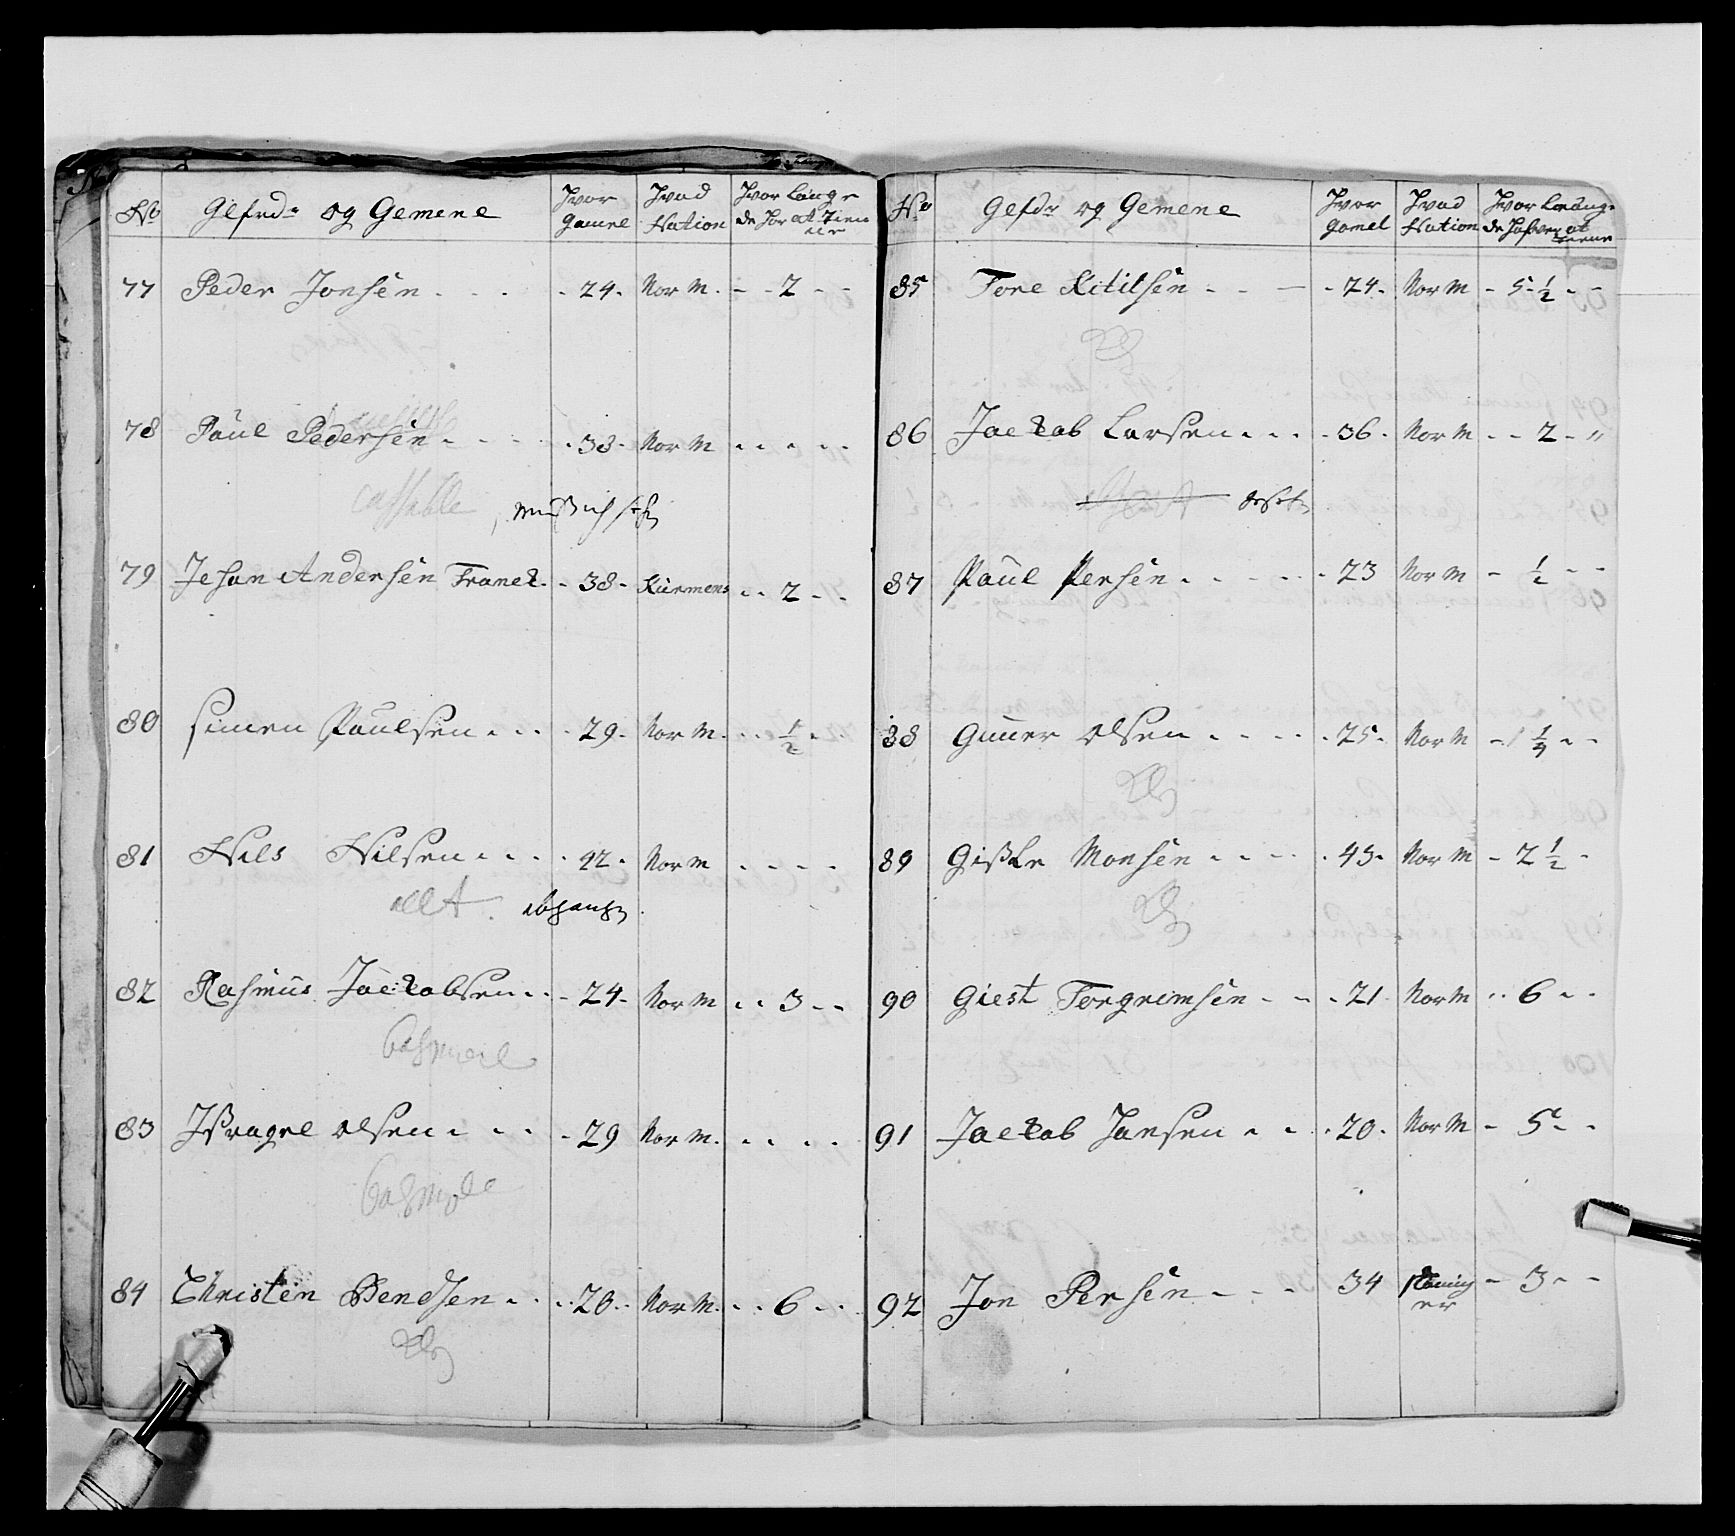 No Gefrd: og Gemene Hvor Gamel Hvad Nation Hvor Länge de Har at Tien
77 Peder Jonsen - 24 - Nor M. - 2 - -
78 Paül Pedersen - 38 - Nor M
cassable
79 Johan Andersen Franck - 38 - 2 -
80 Simen Paulsen - 29 - Nor M. - 1/2 -
81 Nils Nilsen - 42 - Nor M
alt. abgang
82 Rasmus Jackobsen - 24 - Nor M - 3 - -
83 Jsrael Olsen - 29 Nor M.
84 Christen Bendsen - 20 - Nor M. - 6 -
No Gefdr og Gemene Hvor Gamel Hvad Nation Hvor Läng de Hafver at tiene
85 Tore Kitilsen - 24 - Nor M - 5 1/2 - -
86 Jackob Larsen - 36 - Nor M - 2 - "
87 Paül Persen - 23 Nor M - 1/2 - -
88 Guner Olsen - 25 - Nor M - 1 1/4 - -
89 Gisle Monsen - 43 - Nor M - 2 1/2 -
90 Giest Torgrimsen - 21 - Nor M - 6 - -
91 Jackob Jansen - 20 - Nor M - 5 - -
92 Jon Persen - 34 - 3 - -